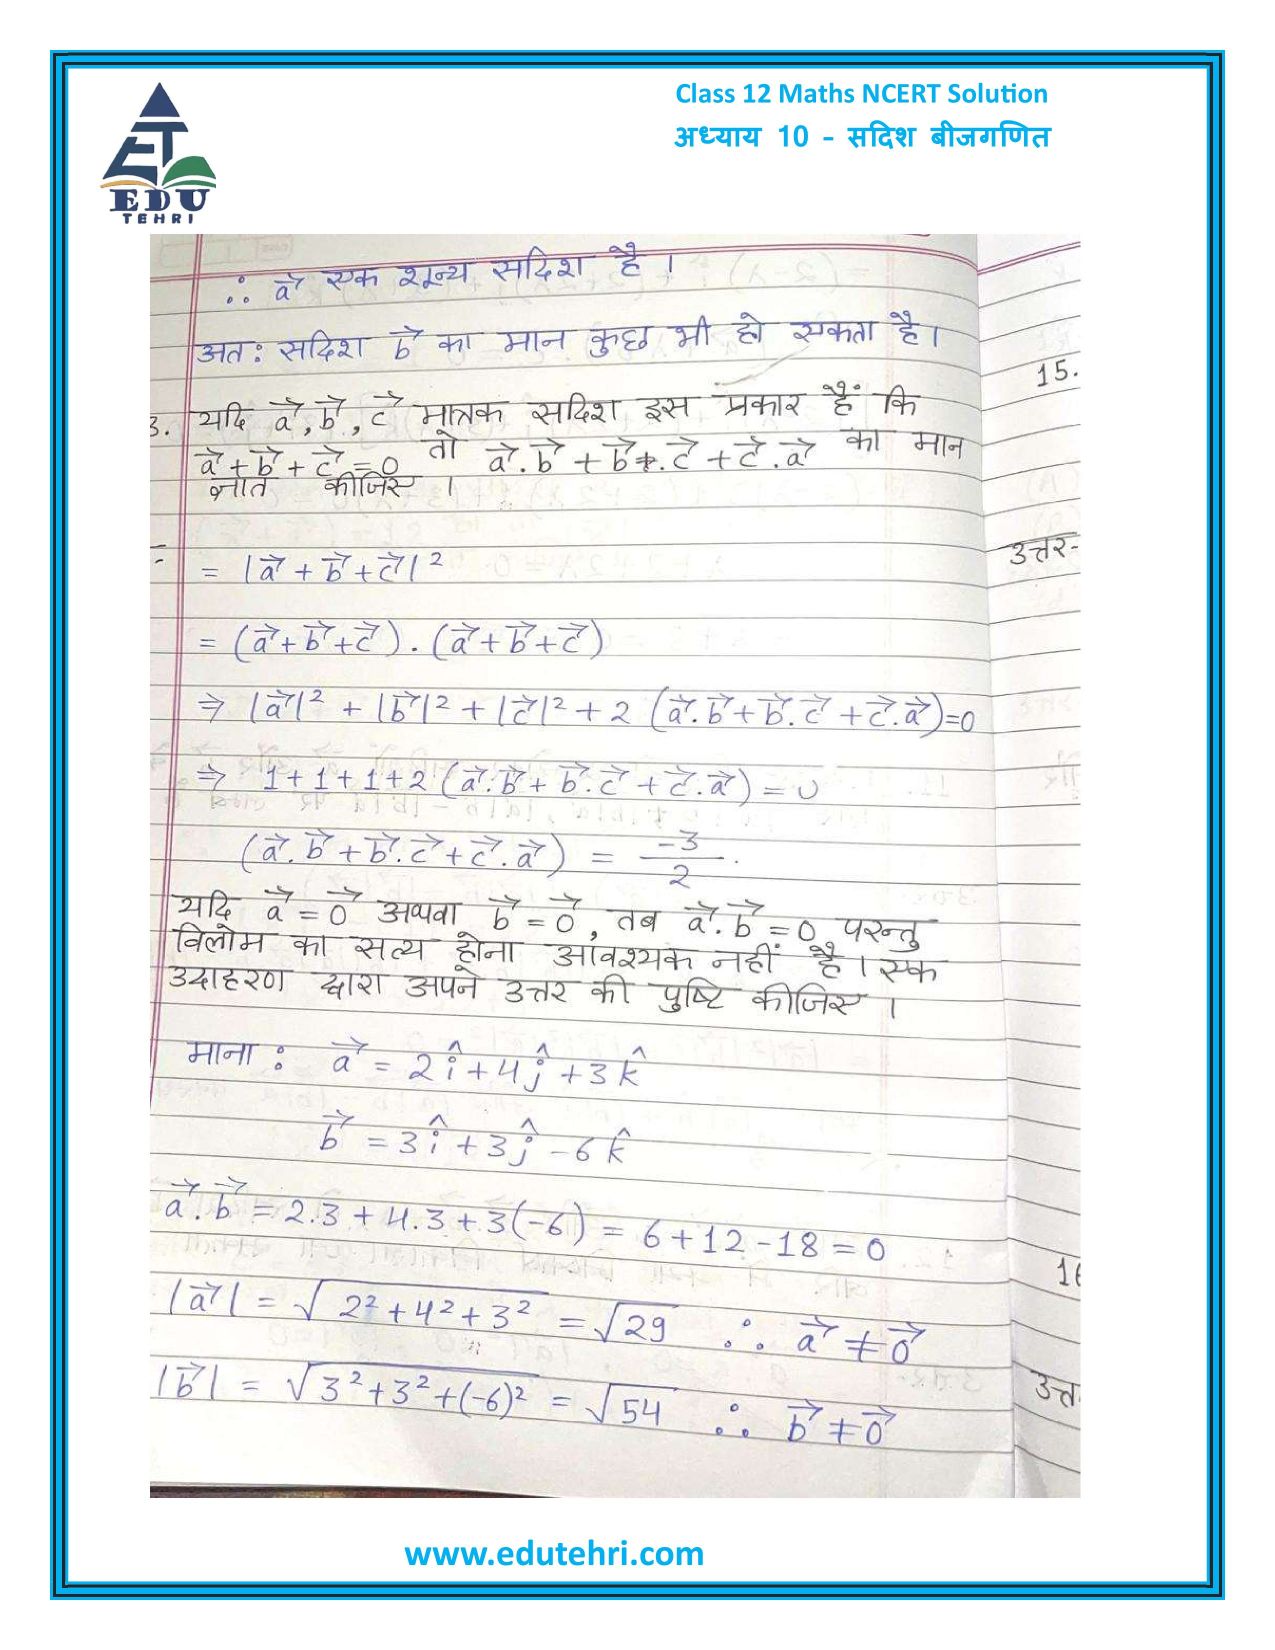 Class 12 Maths NCERT Solution
अध्याय 10 - सदिश बीजगणित
EDU
TEHRI
∴ a⃗ एक शून्य सदिश है ।
अत: सदिश b⃗ का मान कुछ भी हो सकता है।
15.
3. यदि a⃗, b⃗, c⃗ मात्रक सदिश इस प्रकार हैं कि
a⃗ + b⃗ + c⃗ = 0 तो a⃗.b⃗ + b⃗.c⃗ + c⃗.a⃗ का मान
ज्ञात कीजिए ।
उत्तर-
= |a⃗ + b⃗ + c⃗|²
= (a⃗ + b⃗ + c⃗) . (a⃗ + b⃗ + c⃗)
⇒ |a⃗|² + |b⃗|² + |c⃗|² + 2 (a⃗.b⃗ + b⃗.c⃗ + c⃗.a⃗) = 0
⇒ 1 + 1 + 1 + 2 (a⃗.b⃗ + b⃗.c⃗ + c⃗.a⃗) = 0
(a⃗.b⃗ + b⃗.c⃗ + c⃗.a⃗) = -3/2.
यदि a⃗ = 0⃗ अथवा b⃗ = 0⃗, तब a⃗.b⃗ = 0 परन्तु
विलोम का सत्य होना आवश्यक नहीं है । एक
उदाहरण द्वारा अपने उत्तर की पुष्टि कीजिए ।
माना : a⃗ = 2î + 4ĵ + 3k̂
b⃗ = 3î + 3ĵ - 6k̂
a⃗.b⃗ = 2.3 + 4.3 + 3(-6) = 6 + 12 - 18 = 0
16
|a⃗| = √2² + 4² + 3² = √29 ∴ a⃗ ≠ 0⃗
|b⃗| = √3² + 3² + (-6)² = √54 ∴ b⃗ ≠ 0⃗
उत्त
www.edutehri.com